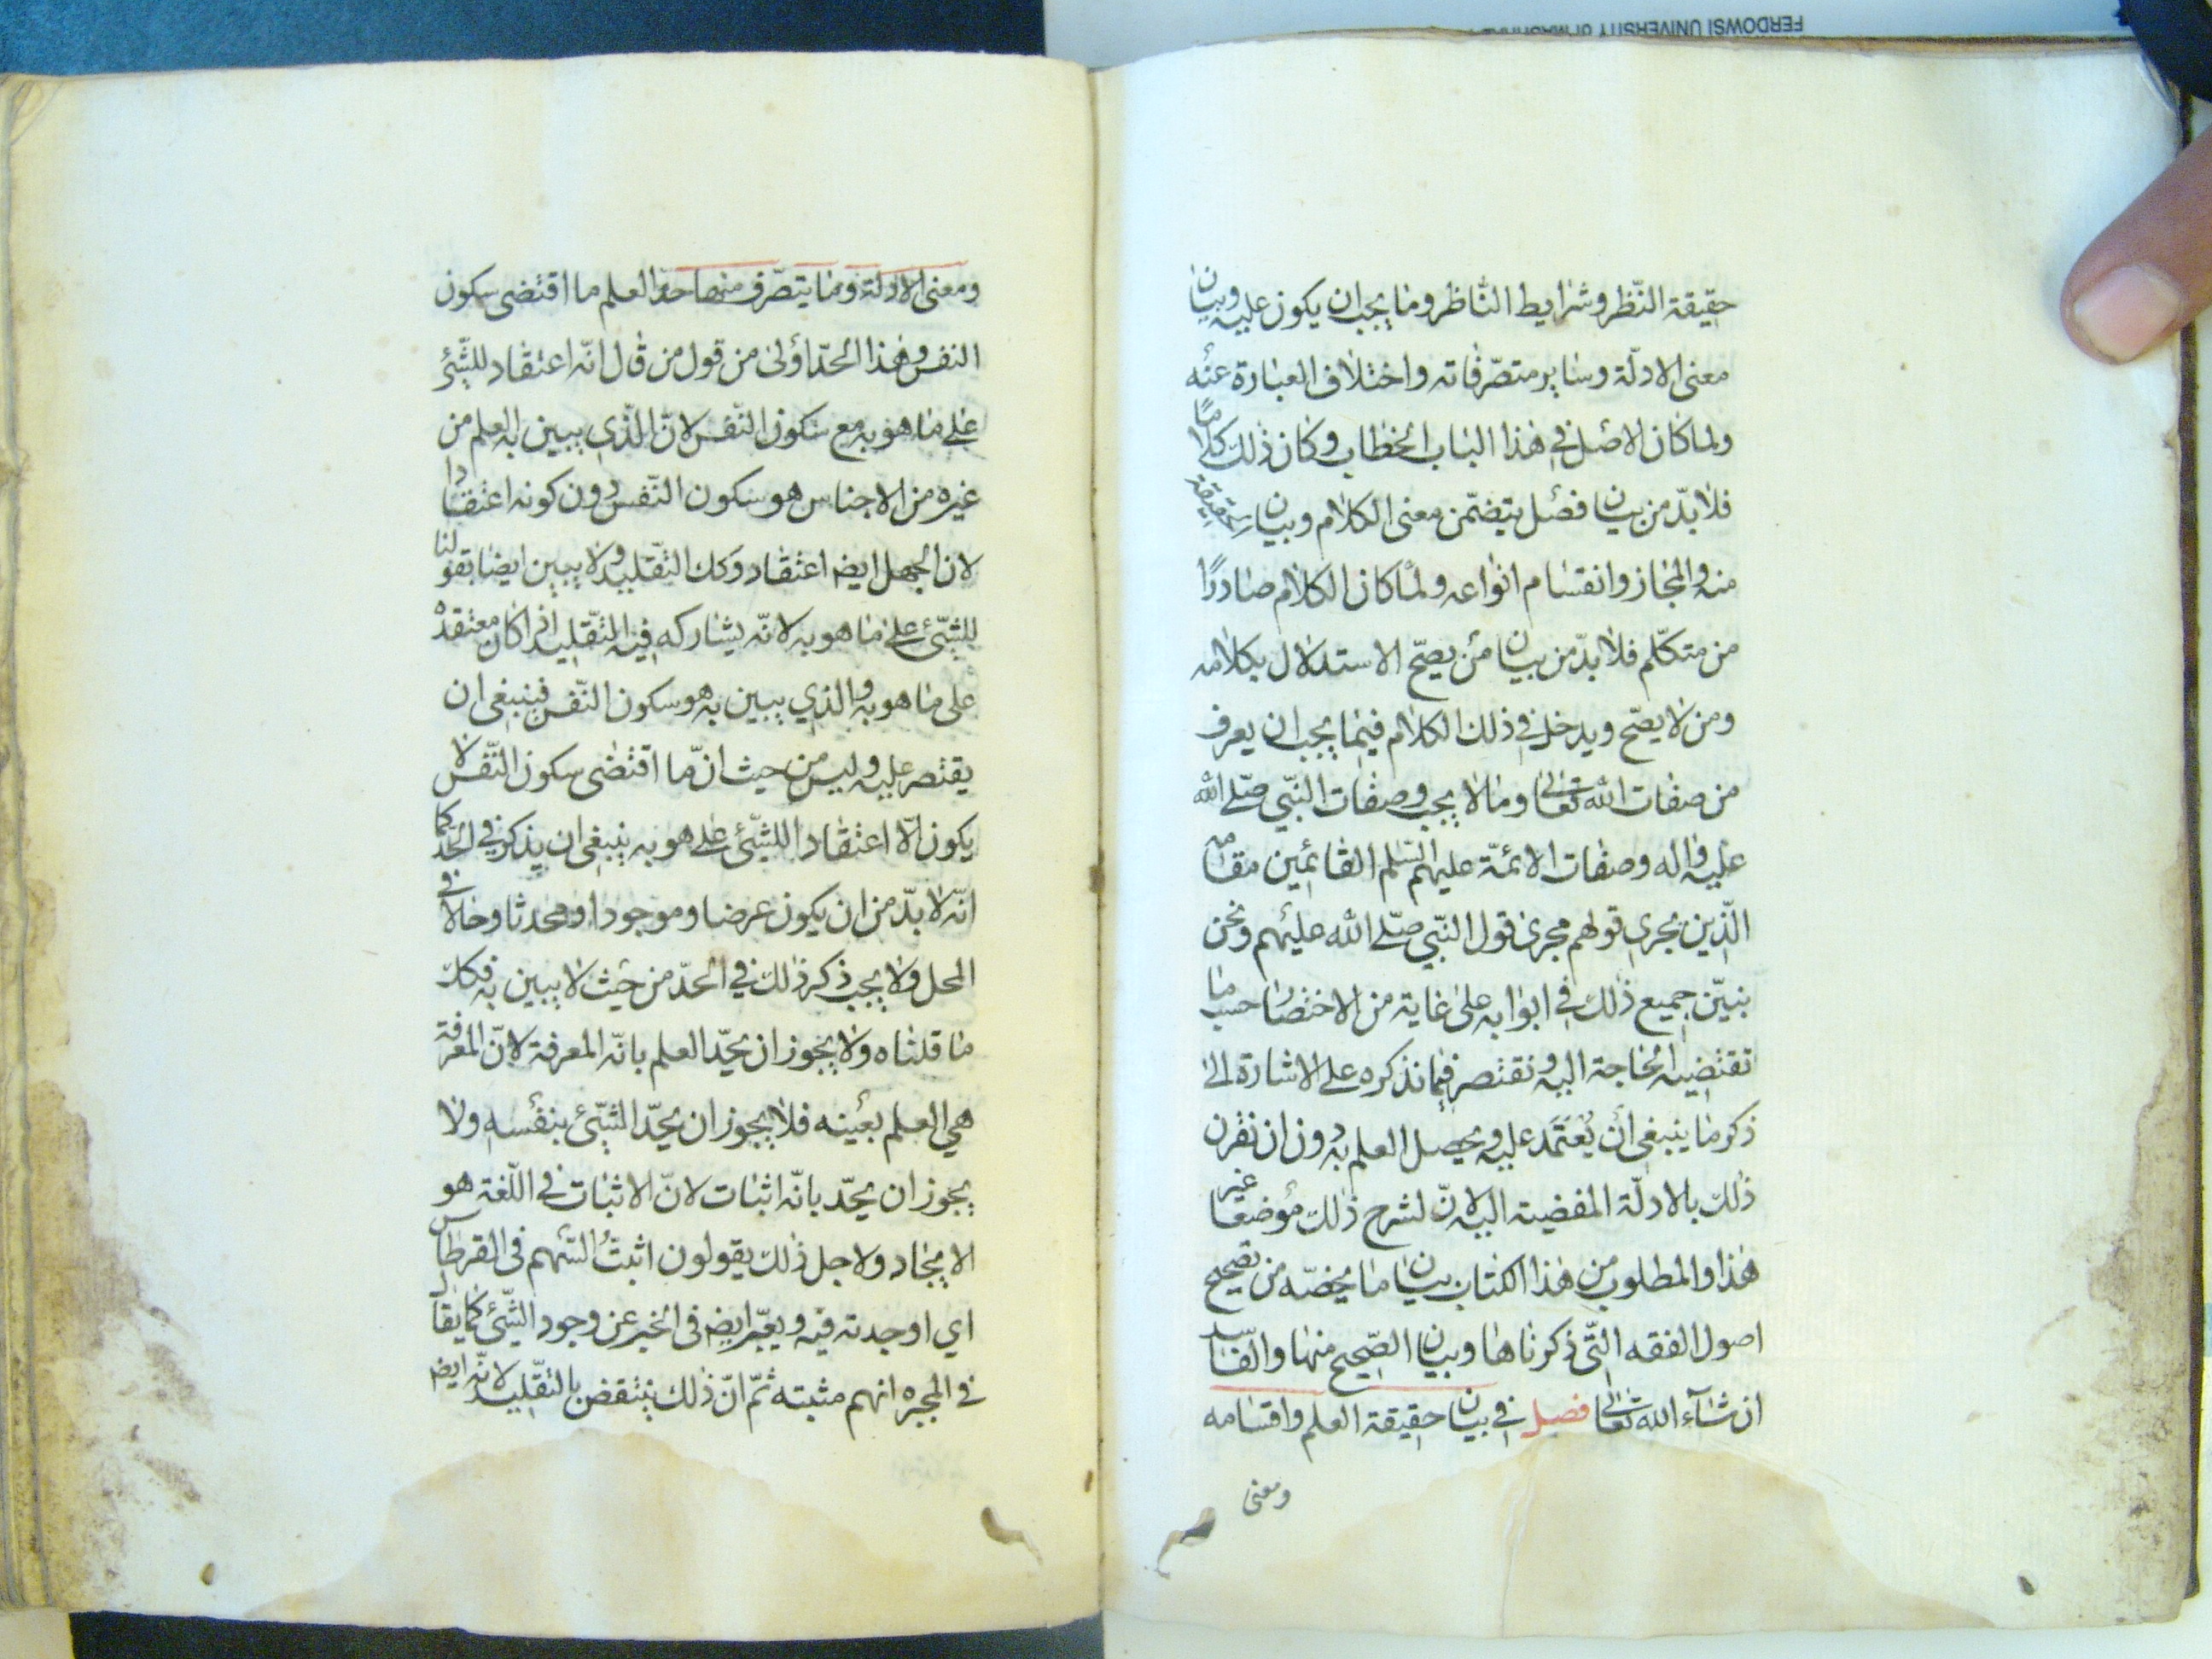 FERDOWSI UNIVERSITY of MASHHAD
حقيقة النّظر وشرايط النّاظر وما يجب ان يكون عليه وبيان
معنى الادلّة وساير متصرّفاته واختلاف العبارة عنه
ولما كان الاصل في هذا الباب الخطاب وكان ذلك كلامًا
فلا بدّ من بيان فصل يتضمّن معنى الكلام وبيان حقيقة
منه والمجاز وانقسام انواعه ولمّا كان الكلام صادرًا
من متكلّم فلا بدّ من بيان من يصحّ الاستدلال بكلامه
ومن لا يصحّ ويدخل في ذلك الكلام فيما يجب ان يعرف
من صفات الله تعالى وما لا يجب وصفات النبّي صلّى الله
عليه واله وصفات الائمّة عليهم السّلم القائمين مقامه
الّذين يجري قولهم مجرى قول النبّي صلّى الله عليهم ونحن
نبيّن جميع ذلك في ابوابه على غاية من الاختصار حسب ما
تقتضيه الحاجة اليه ونقتصر فيما نذكره على الاشارة الى
ذكر ما ينبغي أن يُعتَمَد عليه ويحصل العلم به دون ان نقرن
ذلك بالادلّة المفضية اليه لانّ لشرح ذلك موضعا غير
هذا والمطلوب من هذا الكتاب بيان ما يخصّه من تصحيح
اصول الفقه الّتي ذكرناها وبيان الصّحيح منها والفاسد
ان شآء الله تعالى فصل في بيان حقيقة العلم واقسامه
ومعنى
ومعنى الادلة وما يتصرّف منها حدّ العلم ما اقتضى سكون
النفس وهذا الحدّ اولى من قول من قال انّه اعتقاد للشّئ
على ما هو به مع سكون النّفس لانّ الّذي يبين به العلم من
غيره من الاجناس هو سكون النّفس دون كونه اعتقادا
لان الجهل ايضم اعتقاد وكك التّقليد ولا يبين ايضا بقولنا
للشّئ على ما هو به لانّه يشاركه فيه التّقليد اذا كان معتقده
على ما هو به والذي يبين به هو سكون النّفس فينبغي ان
يقتصر عليه وليس من حيث انّ ما اقتضى سكون النّفس لا
يكون الّا اعتقادا للشّئ على هو به ينبغي ان يذكر في الحدّ كما
انّه لا بدّ من ان يكون عرضا وموجودا ومحدثا وحالا في
المحل ولا يجب ذكر ذلك في الحدّ من حيث لا يبين به فكك
ما قلناه ولا يجوز ان يحدّ العلم بانّه المعرفة لانّ المعرفة
هي العلم بعينه فلا يجوز ان يحدّ الشّئ بنفسه ولا
يجوز ان يحدّ بانّه اثبات لانّ الاثبات في اللّغة هو
الايجاد ولاجل ذلك يقولون اثبتُّ السّهم في القرطاس
اي اوجدته فيه ويعبّر ايضم في الخبر عن وجود الشّئ كما يقال
في المجبره انهم مثبته ثمّ انّ ذلك ينتقض بالتقّليد لانّه ايضم